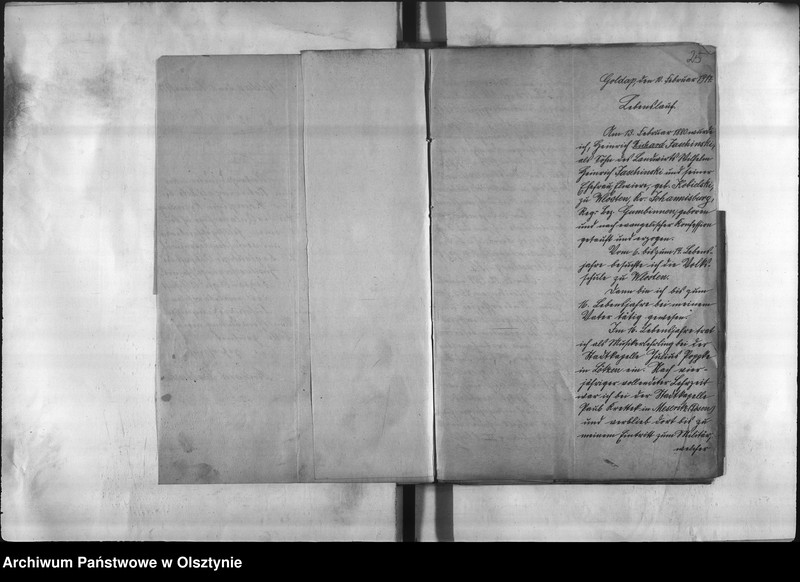 25
Goldap, den 11. Februar 191
Lebenslauf.
Am 13. Februar 1880 wurde
ich, Heinrich Richard Jaschinski,
als Sohn des Landwirts Wilhelm
Heinrich Jaschinski und seiner
Ehefrau, geb.
zu Wlosten, Kr. Johannisburg,
Reg. Bez. Gumbinnen, geboren
und nach evangelischer Konfession
getauft und erzogen.
Vom 6. bis zum 14. Lebens-
jahre besuchte ich die Volks-
schule zu Wlosten.
Dann bin ich bis zum
16. Lebensjahre bei meinem
Vater tätig gewesen.
Im 16. Lebensjahre trat
ich als Musikerlehrling bei der
Stadtkapelle Julius
in Lötzen ein. Nach vier-
jähriger vollendeter Lehrzeit
war ich bei der Stadtkapelle
in
und verblieb dort bis zu
meinem Eintritt zum Militär,
welcher
Archiwum Państwowe w Olsztynie